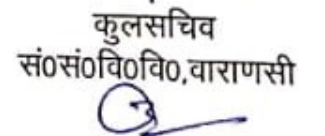 कुलसचिव
सं०सं०वि०वि०,वाराणसी